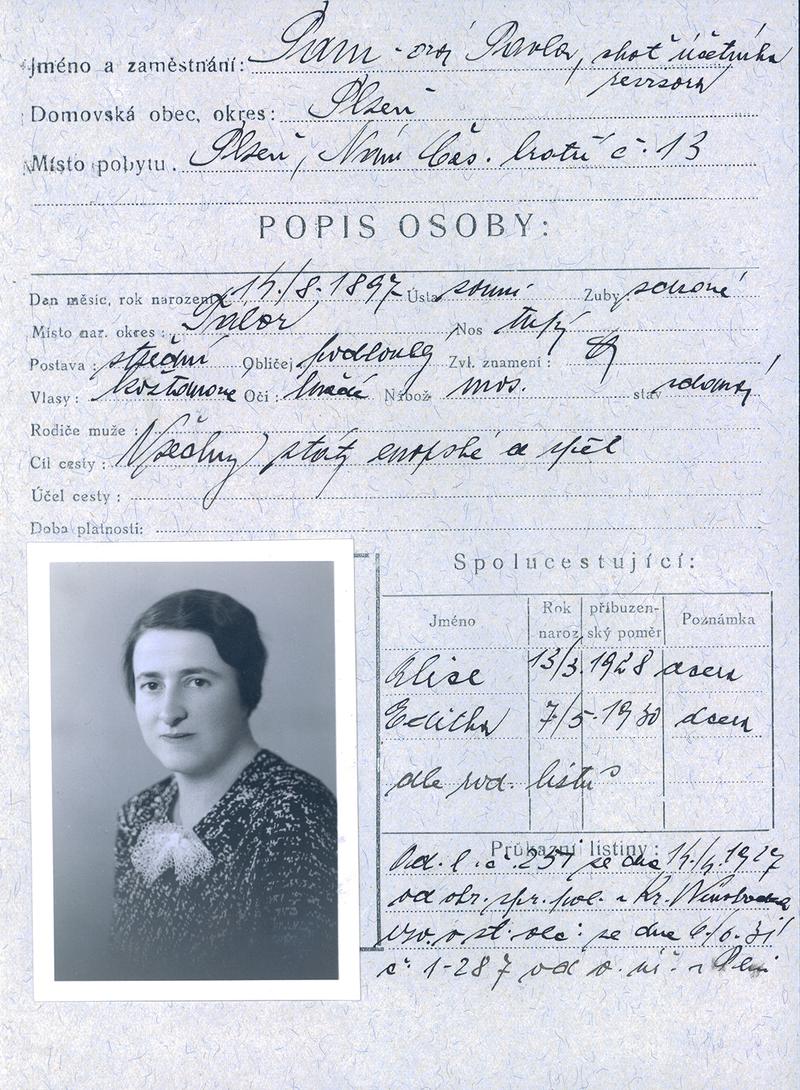 Jméno a zaměstnání: Pavla, choť účetního
revisora
Domovská obec, okres: Plzeň
Místo pobytu. Plzeň, Nám Čes. bratří č. 13
POPIS OSOBY:
Den měsíc, rok narození 14./8. 1897 Ústa souměr. Zuby zdravé
Místo nar. okres: Tábor Nos tupý
Postava: střední Obličej podlouhlý Zvl. znamení:
Vlasy: kaštanové Oči: hnědé Nábož. mos. stav vdaná
Rodiče muže:
Cíl cesty: Všechny státy evropské a zpět
Účel cesty:
Doba platnosti:
Spolucestující:
Jméno Rok naroz. příbuzenský poměr Poznámka
Alice 13/3. 1928 dcera
Editha 7/5. 1930 dcera
dle rod. listů
Průkazní listiny:
č. 257 ze dne 1927
od pol. Kr. Vinohradech
o st. obč. ze dne 6./6. 31
č. 1-287 od o. úř. v Plzni